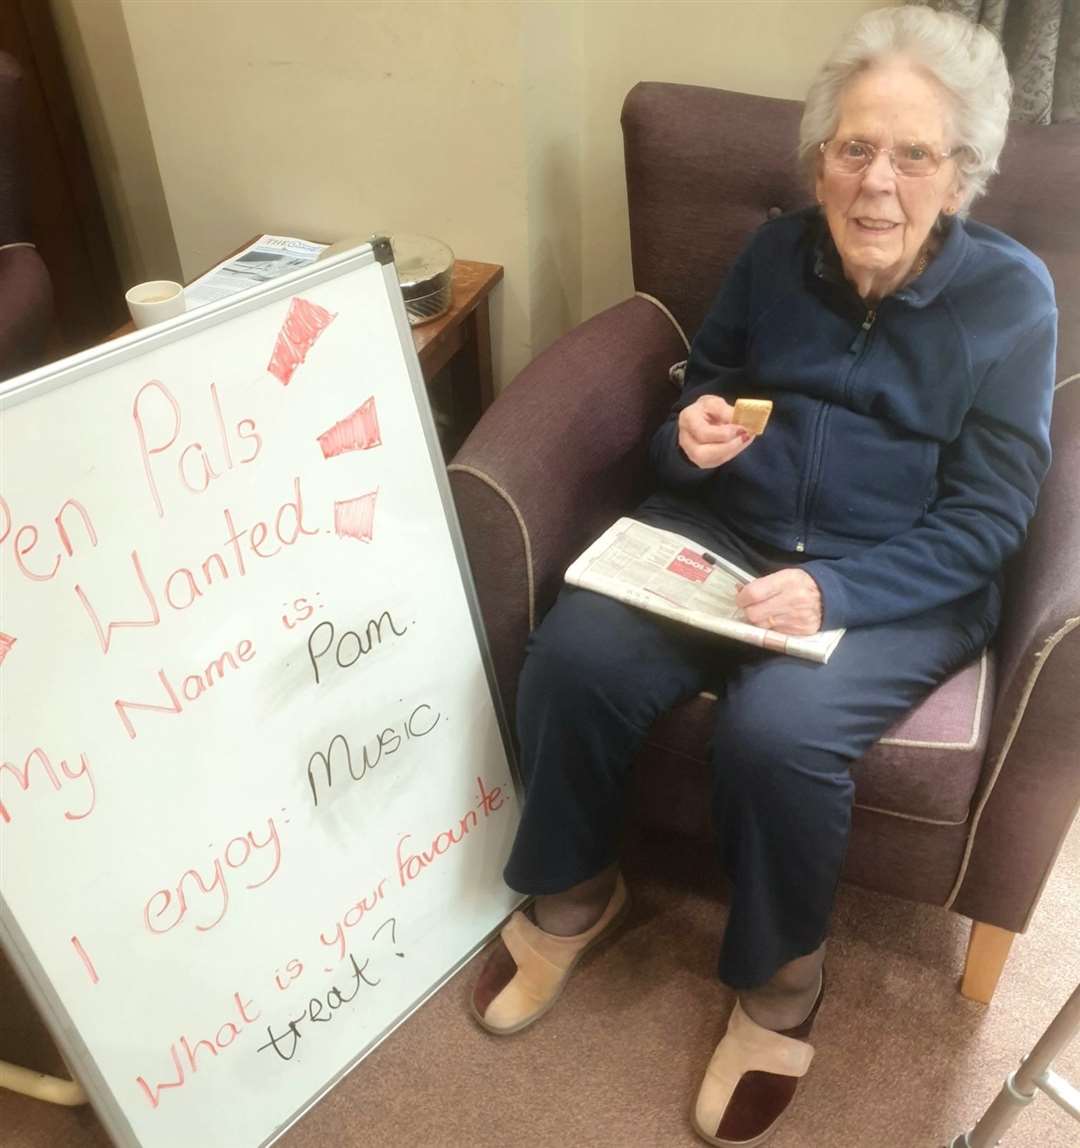 Pen Pals
Wanted.
My Name is: Pam.
I enjoy: Music.
What is your favourite:
treat?
THE
£1000